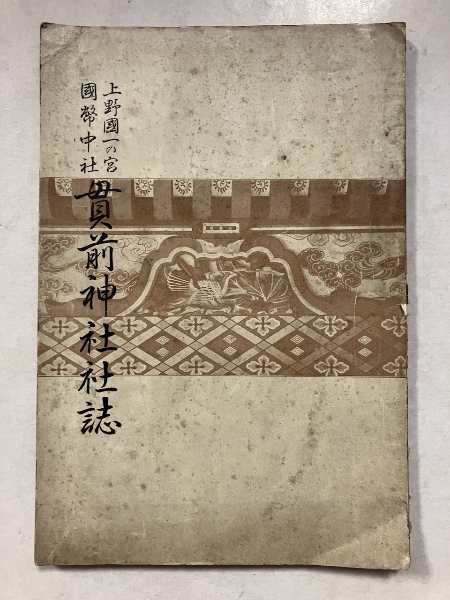 上野國一の宮
國幣中社
貫前神社社誌